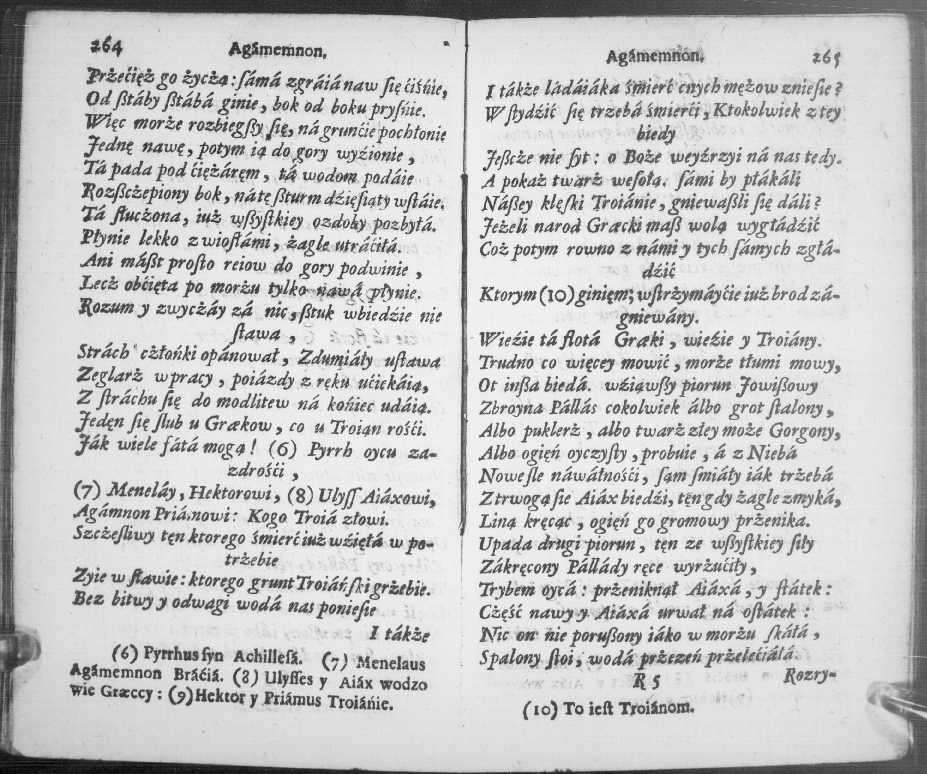 264 Agámemnon.
Przećięż go życżą: ſámá zgráiá naw ſię ćiśńie,
Od ſztáby ſztábá ginie, bok od boku pryśńie.
Więc morże rozbiegſzy ſię, ná grunćie pochłonie
Jednę nawę, potym ią do gory wyźionie,
Tá pada pod ćiężárem, tą wodom podáie
Rozſzcżepiony bok, nátę ſzturm dźięſiąty wſtáie.
Tá ſtucżona, iuż wſzyſtkiey ozdoby pozbyłá.
Płynie lekko z wioſłámi, żagle utráćiłá.
Ani máſzt proſto reiow do gory podwinie,
Lecż obćięta po morżu tylko nawá płynie.
Rozum y zwycżáy zá nic, ſztuk w biedzie nie
ſtawa,
Strách cżłonki opánował, Zdumiáły uſtawa
Zeglarż w pracy, poiázdy z ręku ućiekáią,
Z ſtráchu ſię do modlitew ná końiec udáią.
Jedęn ſię ſlub u Grækow, co u Troian rośći.
Ják wiele fátá mogą! (6) Pyrrh oycu za-
zdrośći,
(7) Meneláy, Hektorowi, (8) Ulyſſ Aiáxowi,
Agámnon Priámowi: Kogo Troiá złowi.
Szcżęſliwy tęn ktorego śmierć iuż wźięłá w po-
trżebie
Zyie w ſławie: ktorego grunt Troiáńſki grżebie.
Bez bitwy y odwagi wodá nas ponieſie
I tákże
(6) Pyrrhus ſyn Achilleſá. (7) Menelaus
Agámemnon Bráćiá. (8) Ulyſſes y Aiáx wodzo
wie Græccy: (9) Hektor y Priámus Troiánie.
Agámemnon. 265
I tákże ládáiáka śmierć cnych mężow znieſie?
Wſtydźić ſię trzebá śmierći, Ktokolwiek z tey
biedy
Jeſzcże nie ſyt: o Boże weyźrzyi ná nas tedy.
A pokaż twarż weſołą. ſámi by płákáli
Náſzey klęſki Troiánie, gniewaſzli ſię dáli?
Jeżeli narod Græcki maſz wolą wygłádźić
Coż potym rowno z námi y tych ſámych zgłá-
dźić
Ktorym (10) giniem; wſtrżymáyćie iuż brod zá-
gniewány.
Wieźie tá flotá Græki, wieźie y Troiány.
Trudno co więcey mowić, morże tłumi mowy,
Ot inſza biedá. wźiąwſzy piorun Jowiſzowy
Zbroyna Pállás cokolwiek álbo grot ſtalony,
Albo puklerż, albo twarż złey może Gorgony,
Albo ogięń oycżyſty, probuie, á z Niebá
Nowe ſle náwáłnośći, ſąm ſmiáły iák trżebá
Z trwogą ſie Aiáx biedźi, tęn gdy żagle zmyká,
Liną kręcąc, ogięń go gromowy prżenika.
Upada drugi piorun, tęn ze wſzyſtkiey ſiły
Zákręcony Pállády ręce wyrżućiły,
Trybem oycá: prżeniknął Aiáxá, y ſtátek:
Część nawy y Aiáxá urwał ná oſtátek:
Nic on nie poruſzony iáko w morżu ſkáłá,
Spalony ſtoi, wodá prżezeń prżelećiáłá.
R 5 Rozry-
(10) To ieſt Troiánom.